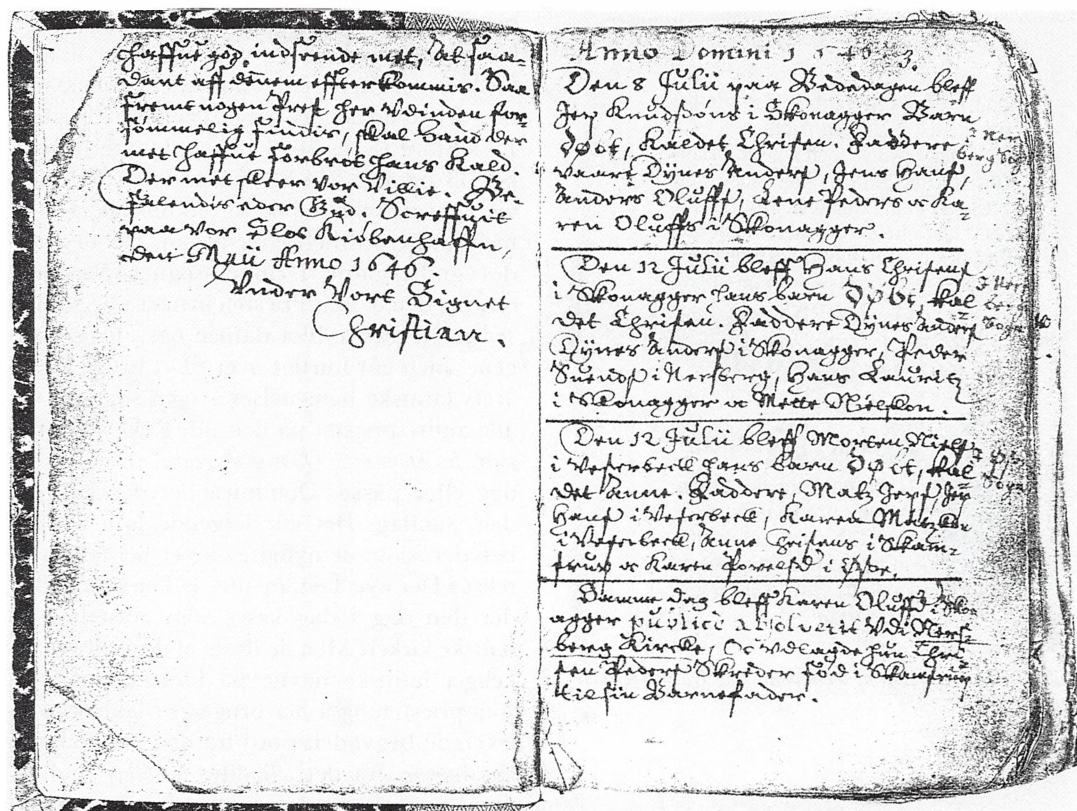 haffue goz indseende met, at saa-
dant aff dennem effterkommis. Saa
fremt nogen Prest her udinden for-
sømmelig findis, skal hand der
met haffue forbrøt hans Kald.
Der met skeer vor Villie. Be-
falendis eder Gud. Screffuit
paa vor Slot Kiøbenhaffn,
den Maii Anno 1646
Under Vort Signet
Christian.
Anno Domini 1646 3.
Den 8 Julii paa Bededagen bleff
Jep Knudsøns i Skonagger Barn
Døbt, Kaldet Christen. Faddere
vaare Dynes Anders, Jens Hans,
Anders Oluffs, Lene Peders oc Ka-
ren Oluffs i Skonagger.
Den 12 Julii bleff Hans Christens
i Skonagger hans barn Døbt, kal
det Christen. Faddere Dynes Anders
Dynes Anders i Skonagger, Peder
Suends i Nersberg, Hans Lauritz
i Skonagger oc Mette Nielskon.
Den 12 Julii bleff Morten Niels
i Vesterbeck hans barn Døbt, kal
det Anne. Faddere, Matz Jeps, Jep
Hans i Vesterbeck, Karen Matzkon
i Vesterbeck, Anne Christens i Skam-
strup oc Karen Povelsd i
Samme dag bleff Karen Oluffsd i Sko
agger publice absolverit udi Ners-
berg Kircke, Oc udlagde hun Chris-
ten Peders Skreder fød i Skamstrup
til sin Barnefader.